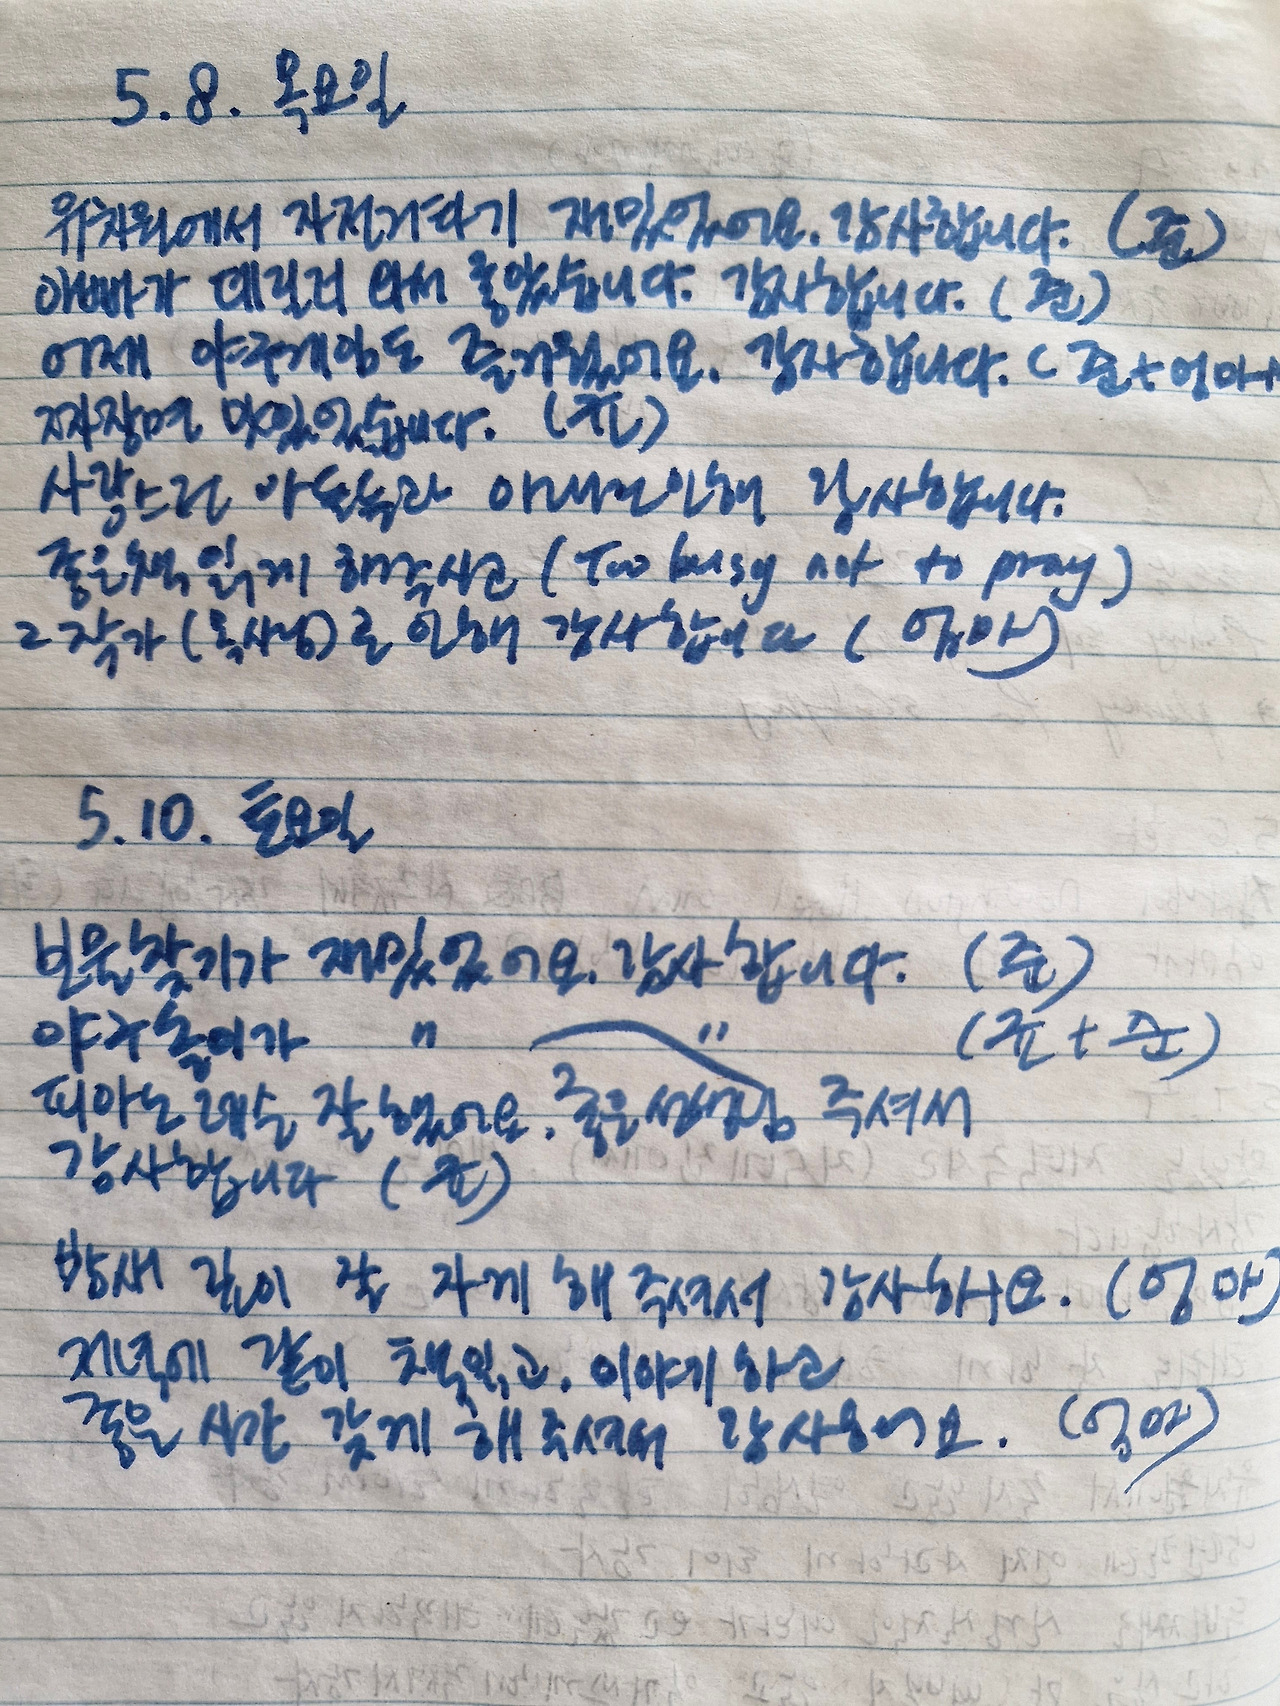 5.8. 목요일
유치원에서 자전거타기 재밌있었어요. 감사합니다. (준)
아빠가 데릴러 와서 좋았습니다. 감사합니다. (준)
어제 야구게임도 즐거웠어요. 감사합니다. (준+엄마+
짜장면 맛있었습니다. (준)
사랑스런 아들들과 아내로인해 감사합니다.
좋은책 읽게 해주시고 (Too busy not to pray)
그 작가 (목사님)로 인해 감사합니다 (엄마)
5.10. 토요일
보물찾기가 재밌있었어요. 감사합니다. (준)
야구놀이가 " " (윤+준)
피아노레슨 잘했어요. 좋은선생님 주셔서
감사합니다 (준)
밤새 깊이 잘 자게 해주셔서 감사해요. (엄마)
저녁에 같이 책읽고. 이야기하고
좋은 시간 갖게 해주셔서 감사해요. (엄마)